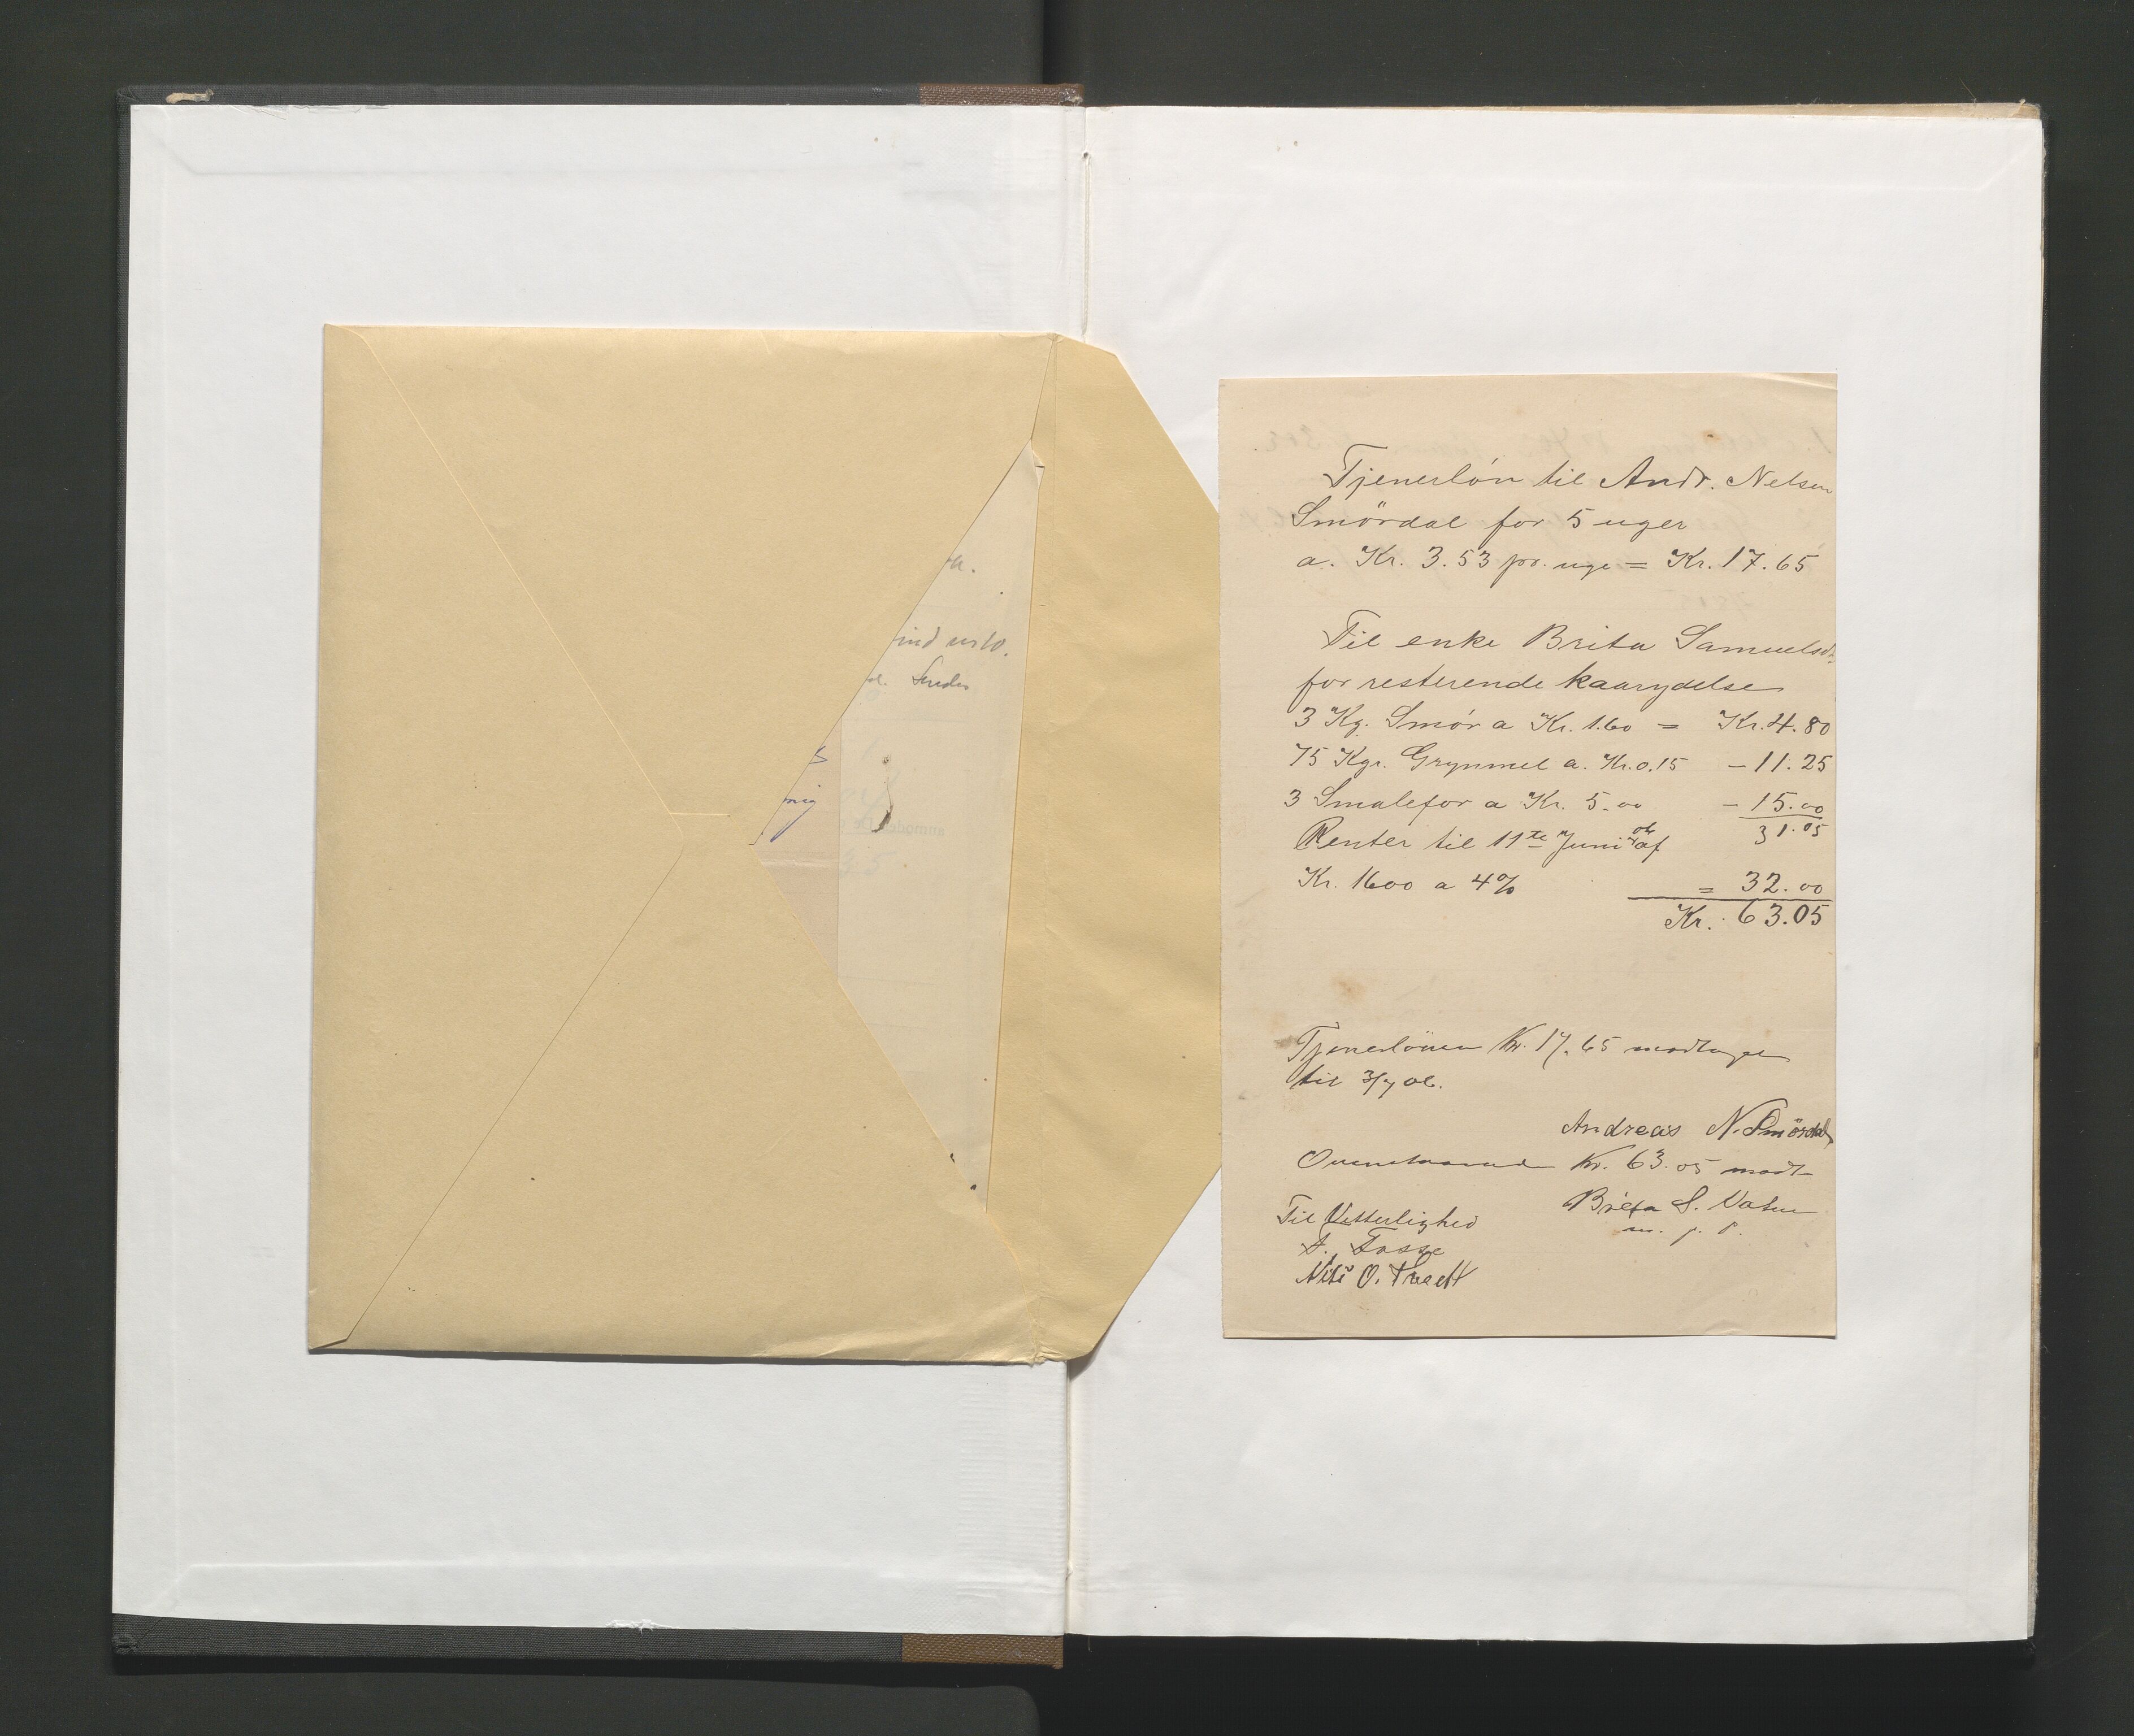 Tjenerlön til Andr. Nelsen
Smördal for 5 uger
a. Kr. 3.53 pr. uge = Kr. 17.65
Til enke Brita Samuelsdt.
for resterende kaarydelse
3 Kg. Smör a Kr. 1.60 = Kr. 4.80
75 Kgr. Grynmel a. Kr. 0.15 - 11.25
3 Smalefor a Kr. 5.00 - 15.00
31.05
Renter til 11te Juni 06 af
Kr. 1600 a 4% = 32.00
Kr. 63.05
Tjenerlönen Kr. 17.65 modtagen
til 3/7 06.
Andreas N. Smördal
Ovenstaaende Kr. 63.05 modt
Brita S. Vatne
m. p. P.
Til Vitterlighed
A. Fosse
Nils O.
ind
Sendes
mig